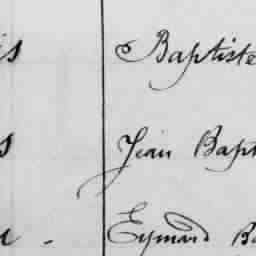 is Baptiste
s Jean Bapt
Eymard Ba